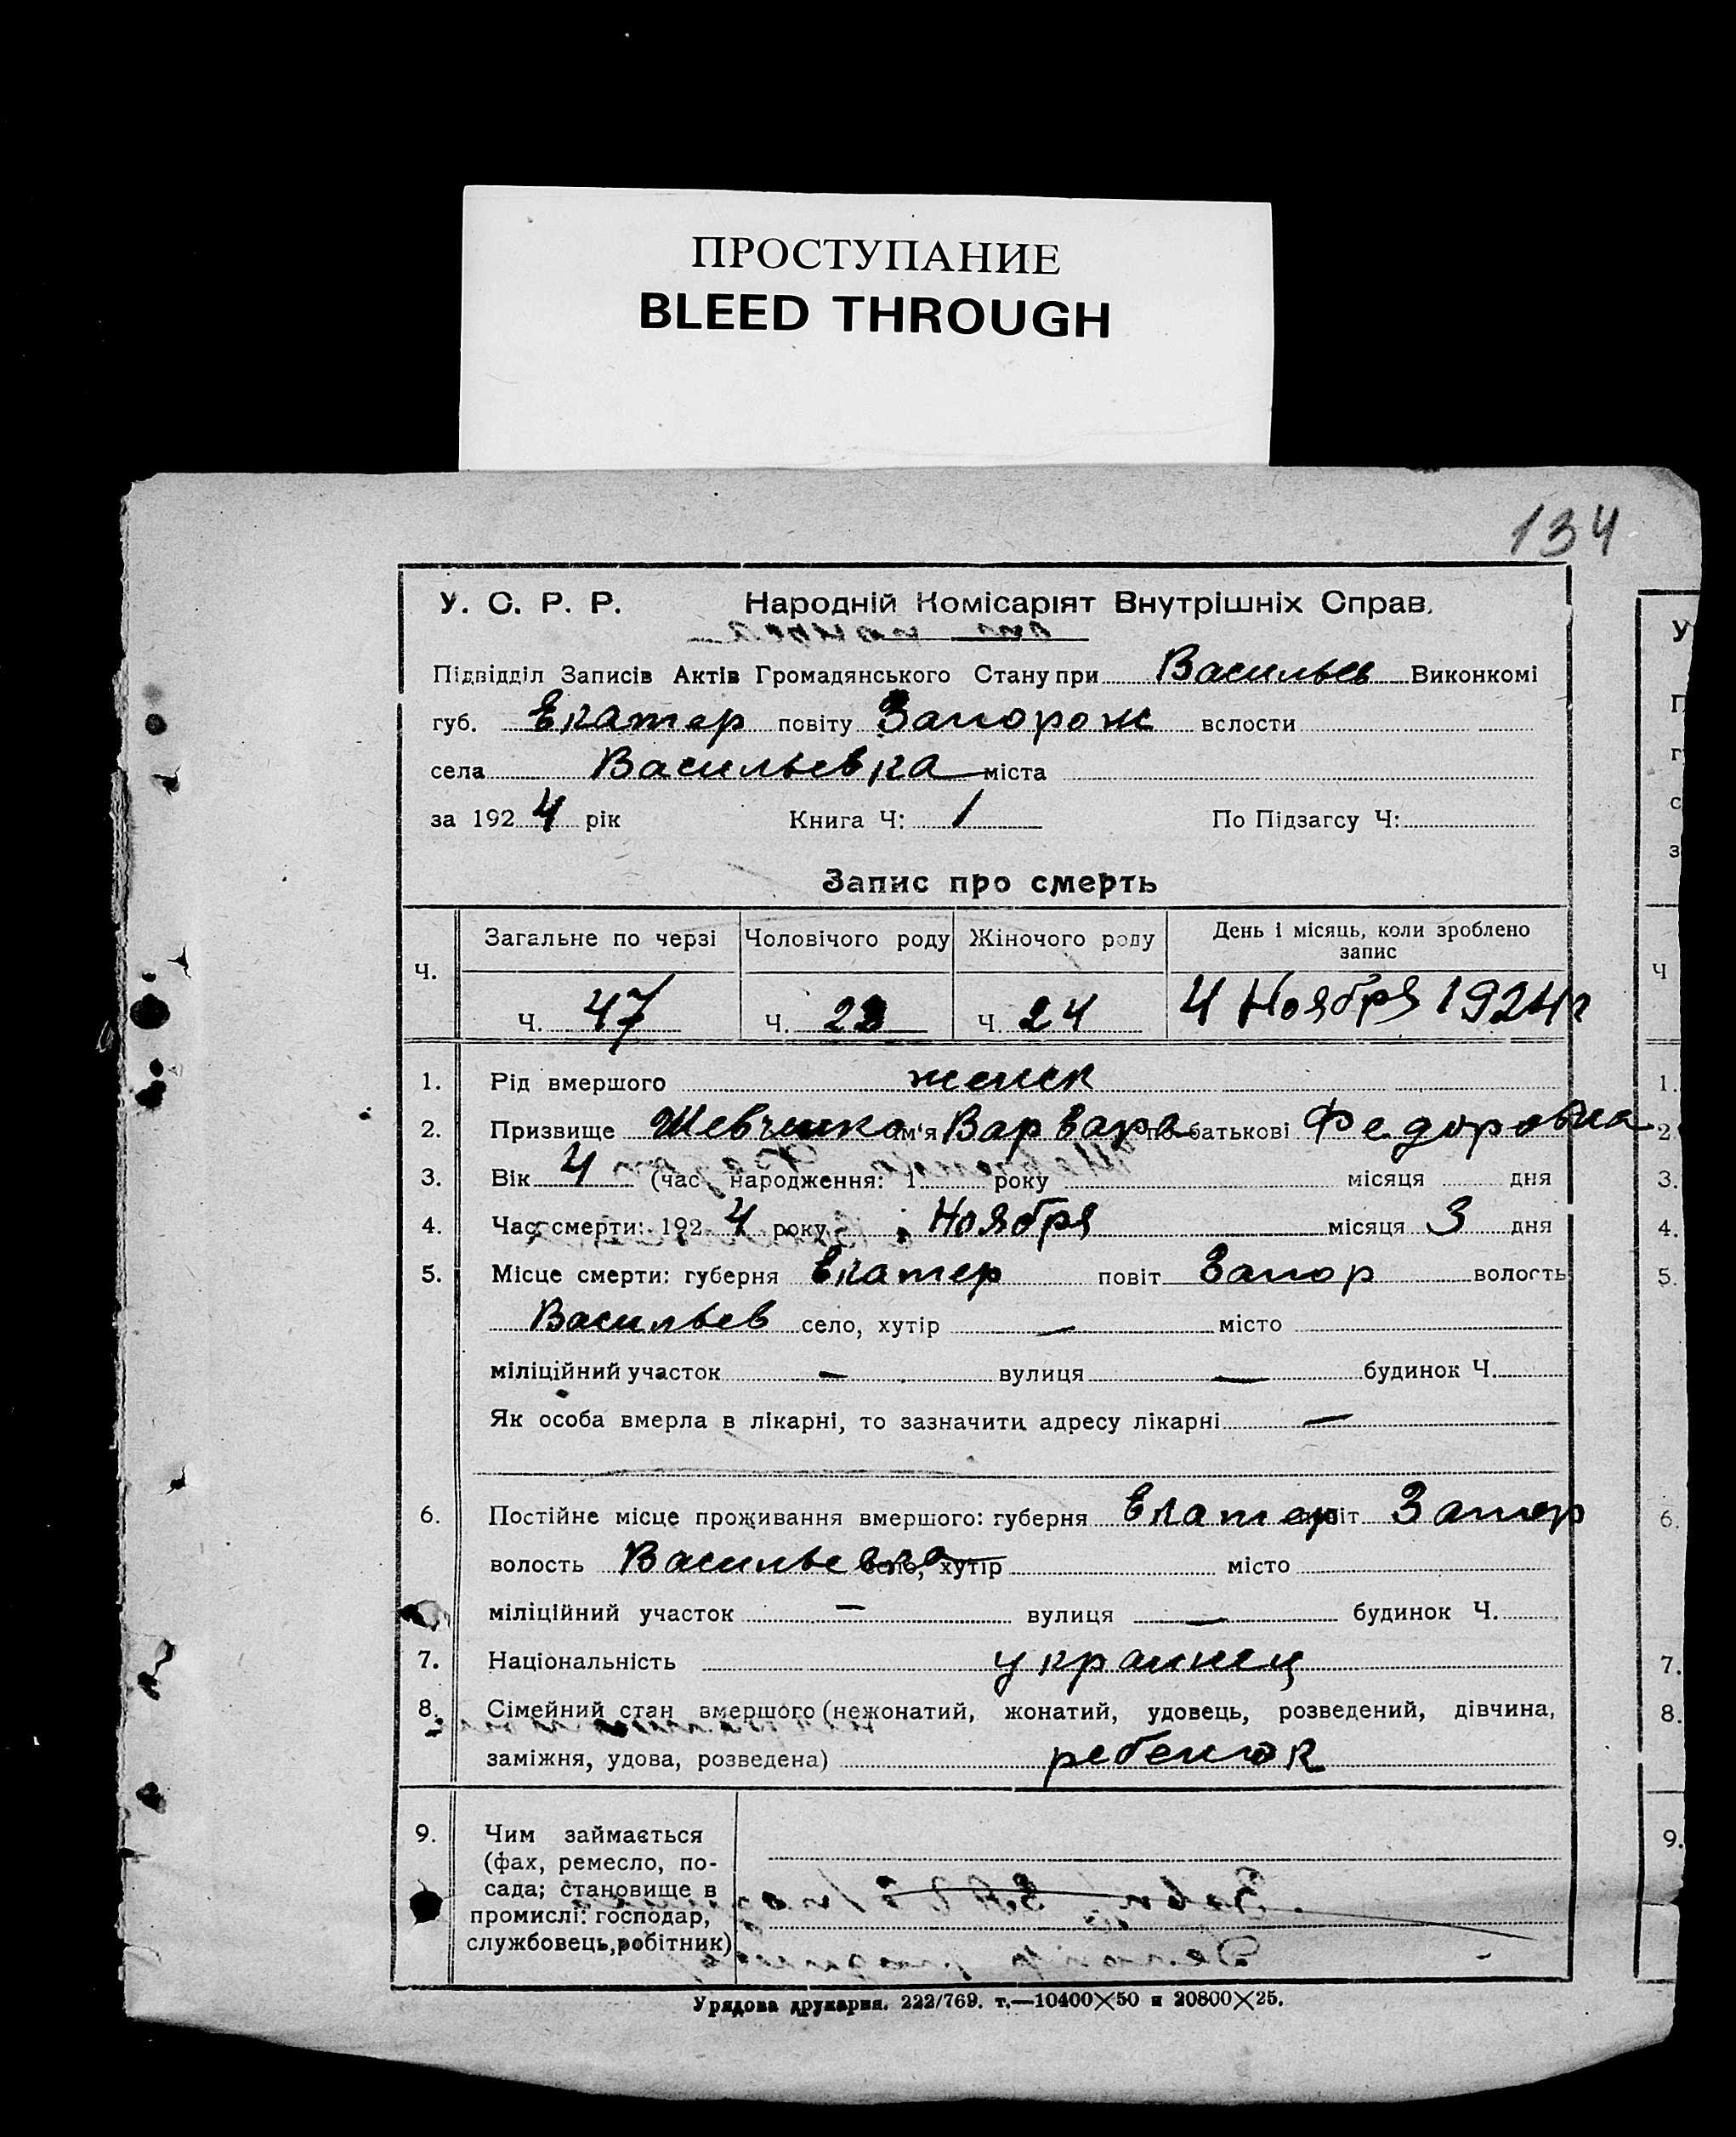 ПРОСТУПАНИЕ
BLEED THROUGH
134
У. С. Р. Р. Народній Комісаріят Внутрішніх Справ.
Підвідділ Записів Актів Громадянського Стану при Васильев Виконкомі
губ. Екатер повіту Запорож вслости
села Васильевка міста
за 1924 рік Книга Ч: 1 По Підзагсу Ч:
Запис про смерть
Ч. Загальне по черзі Чоловічого роду Жіночого роду День і місяць, коли зроблено запис
Ч. 47 Ч. 23 Ч 24 4 Ноября 1924 г
1. Рід вмершого женск
2. Призвище Шевченко ім'я Варвара по батькові Федоровна
3. Вік 4 (час народження: 1 року місяця дня
4. Час смерти: 1924 року Ноября місяця 3 дня
5. Місце смерти: губерня Екатер повіт Запор волость
Васильев село, хутір — місто
міліційний участок — вулиця — будинок Ч.
Як особа вмерла в лікарні, то зазначити адресу лікарні —
6. Постійне місце проживання вмершого: губерня Екатер повіт Запор
волость Васильевка село, хутір місто
міліційний участок — вулиця — будинок Ч.
7. Національність украинец
8. Сімейний стан вмершого (нежонатий, жонатий, удовець, розведений, дівчина,
заміжня, удова, розведена) ребенок
9. Чим займається
(фах, ремесло, по-
сада; становище в
промислі: господар,
службовець, робітник)
Урядова друкарня. 222/769. т.—10400×50 и 20800×25.
У
П
г
с
з
Ч
1.
2
3.
4.
5.
6.
7.
8.
9.